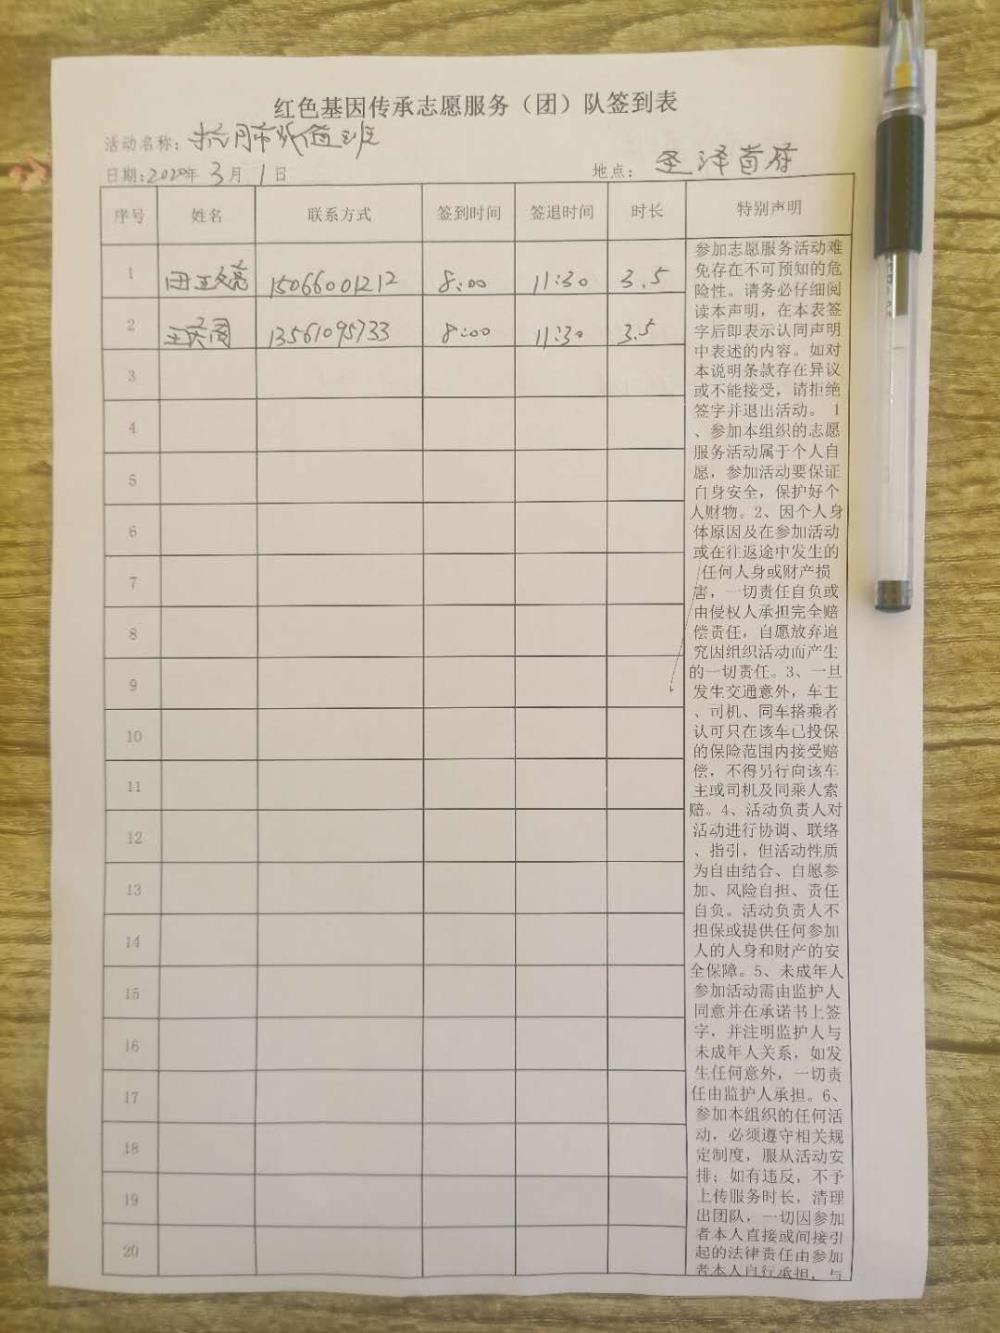 红色基因传承志愿服务（团）队签到表
活动名称：抗肺炎值班
日期：2020年 3月 1日 地点： 圣泽首府
序号 姓名 联系方式 签到时间 签退时间 时长 特别声明
1 15066001212 8:00 11:30 3.5
2 13561095733 8:00 11:30 3.5
3
4
5
6
7
8
9
10
11
12
13
14
15
16
17
18
19
20
参加志愿服务活动难
免存在不可预知的危
险性。请务必仔细阅
读本声明，在本表签
字后即表示认同声明
中表述的内容。如对
本说明条款存在异议
或不能接受，请拒绝
签字并退出活动。 1
、参加本组织的志愿
服务活动属于个人自
愿，参加活动要保证
自身安全，保护好个
人财物。2、因个人身
体原因及在参加活动
或在往返途中发生的
任何人身或财产损
害，一切责任自负或
由侵权人承担完全赔
偿责任，自愿放弃追
究因组织活动而产生
的一切责任。3、一旦
发生交通意外，车主
、司机、同车搭乘者
认可只在该车已投保
的保险范围内接受赔
偿，不得另行向该车
主或司机及同乘人索
赔。4、活动负责人对
活动进行协调、联络
、指引，但活动性质
为自由结合、自愿参
加、风险自担、责任
自负。活动负责人不
担保或提供任何参加
人的人身和财产的安
全保障。5、未成年人
参加活动需由监护人
同意并在承诺书上签
字，并注明监护人与
未成年人关系，如发
生任何意外，一切责
任由监护人承担。6、
参加本组织的任何活
动，必须遵守相关规
定制度，服从活动安
排；如有违反，不予
上传服务时长，清理
出团队，一切因参加
者本人直接或间接引
起的法律责任由参加
者本人自行承担，与